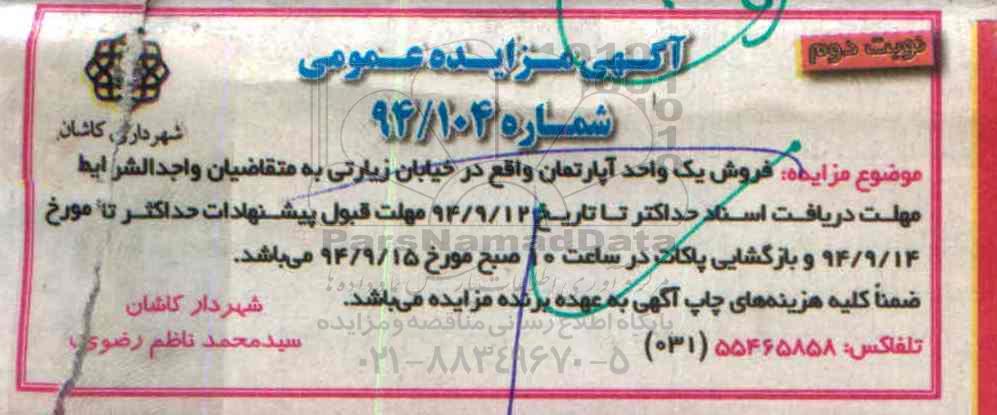 نوبت دوم
آگهی مزایده عمومی
شماره ۹۴/۱۰۴
شهرداری کاشان
موضوع مزایده: فروش یک واحد آپارتمان واقع در خیابان زیارتی به متقاضیان واجدالشرایط
مهلت دریافت اسناد حداکثر تا تاریخ ۹۴/۹/۱۲ مهلت قبول پیشنهادات حداکثر تا مورخ
۹۴/۹/۱۴ و بازگشایی پاکات در ساعت ۱۰ صبح مورخ ۹۴/۹/۱۵ می‌باشد.
ضمناً کلیه هزینه‌های چاپ آگهی به عهده برنده مزایده می‌باشد.
تلفاکس: ۵۵۴۶۵۸۵۸ (۰۳۱)
شهردار کاشان
سیدمحمد ناظم رضوی
ParsNamadData
پایگاه اطلاع رسانی مناقصه و مزایده
۰۲۱-۸۸۳۴۹۶۷۰-۵